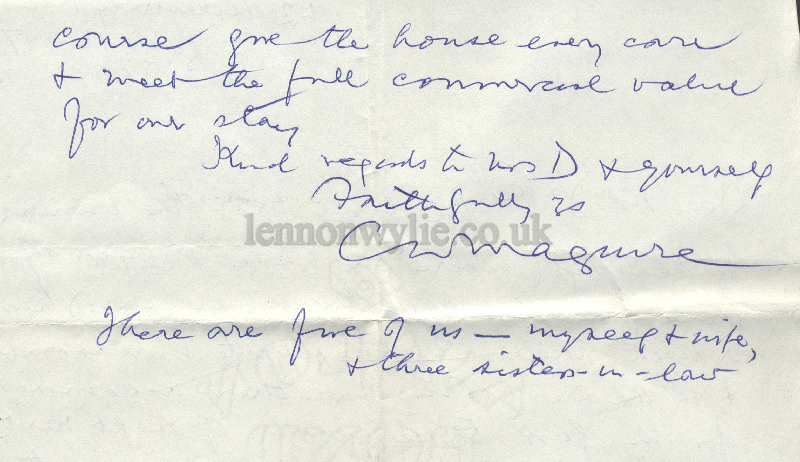 course give the house every care
+ meet the full commercial value
for our stay
Kind regards to Mrs D + yourself
Faithfully yrs
lennonwylie.co.uk
CWMaguire
There are five of us — myself + wife,
+ three sisters-in-law